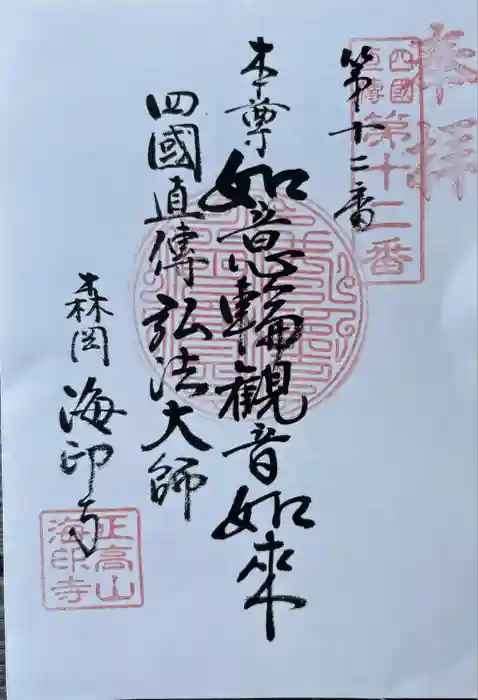 奉拝
四國直傳 第十二番
第十二番
本尊 如意輪觀音如來
四國直傳 弘法大師
森岡 海印寺
正高山
海印寺